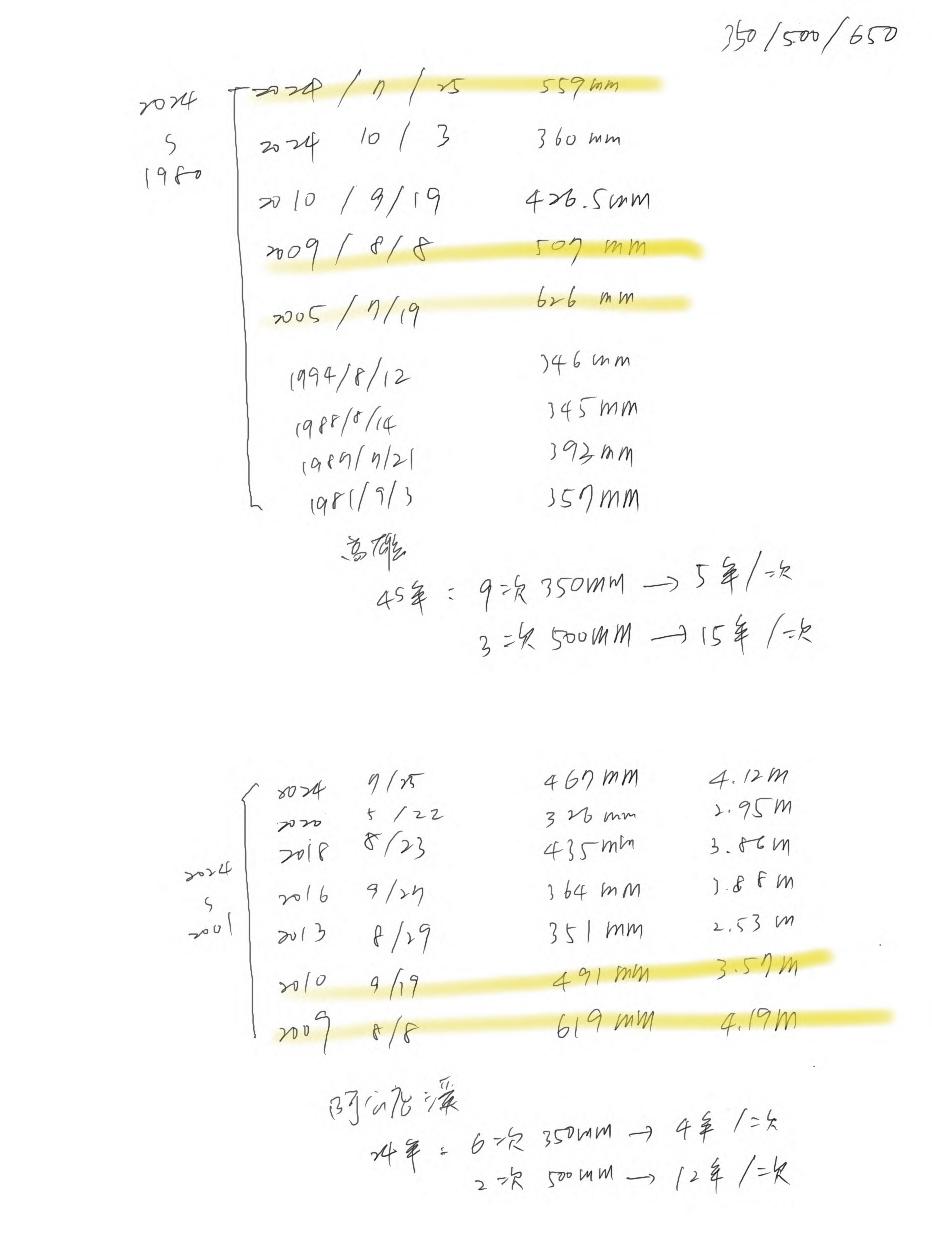 350/500/650
2024 / 7 / 25 559mm
2024
2024 10 / 3 360 mm
S
1980
2010 / 9/19 426.5mm
2009 / 8/8 507 mm
2005 / 7/19 626 mm
1994/8/12 346 mm
1988/8/14 345 mm
1987/7/21 392 mm
1981/9/3 357mm
高雄
45年 : 9次 350mm → 5年/次
3次 500mm → 15年/次
2024 7/25 467 mm 4.12m
2020 5/22 326 mm 2.95m
2018 8/23 435mm 3.86m
2024
2016 9/27 364 mm 3.88m
S
2001
2013 8/29 351 mm 2.53 m
2010 9/19 491 mm 3.57m
2009 8/8 619 mm 4.19m
阿公店溪
24年 : 6次 350mm → 4年/次
2次 500mm → 12年/次